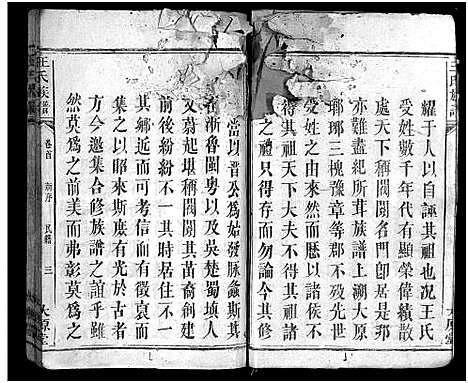 氏族譜
太原堂
耀于人以自誣其祖也況王氏
受姓數千年代有顯榮偉績散
處天下稱閥閱名門即居是邦
亦難盡紀所茸族譜上溯太原
瑯琊三槐豫章等郡不殁先世
之由來然而懸以諸侯不
得其祖天下大夫不得其祖
之禮只得存而勿論
當以晉公為始發脉螽斯其
在浙魯閩粤以及吳楚蜀填人
文蔚起堪稱閥閱其苗裔創建
前後紛紛不一其時居住不一
其鄉近而可考信而有徵裒而
集之以昭來斯庶有光於古者
方今邀集合修族譜之誼乎雖
然莫為之美而弗彰莫為之
王氏族譜
卷首 序 民籍 三
太原堂